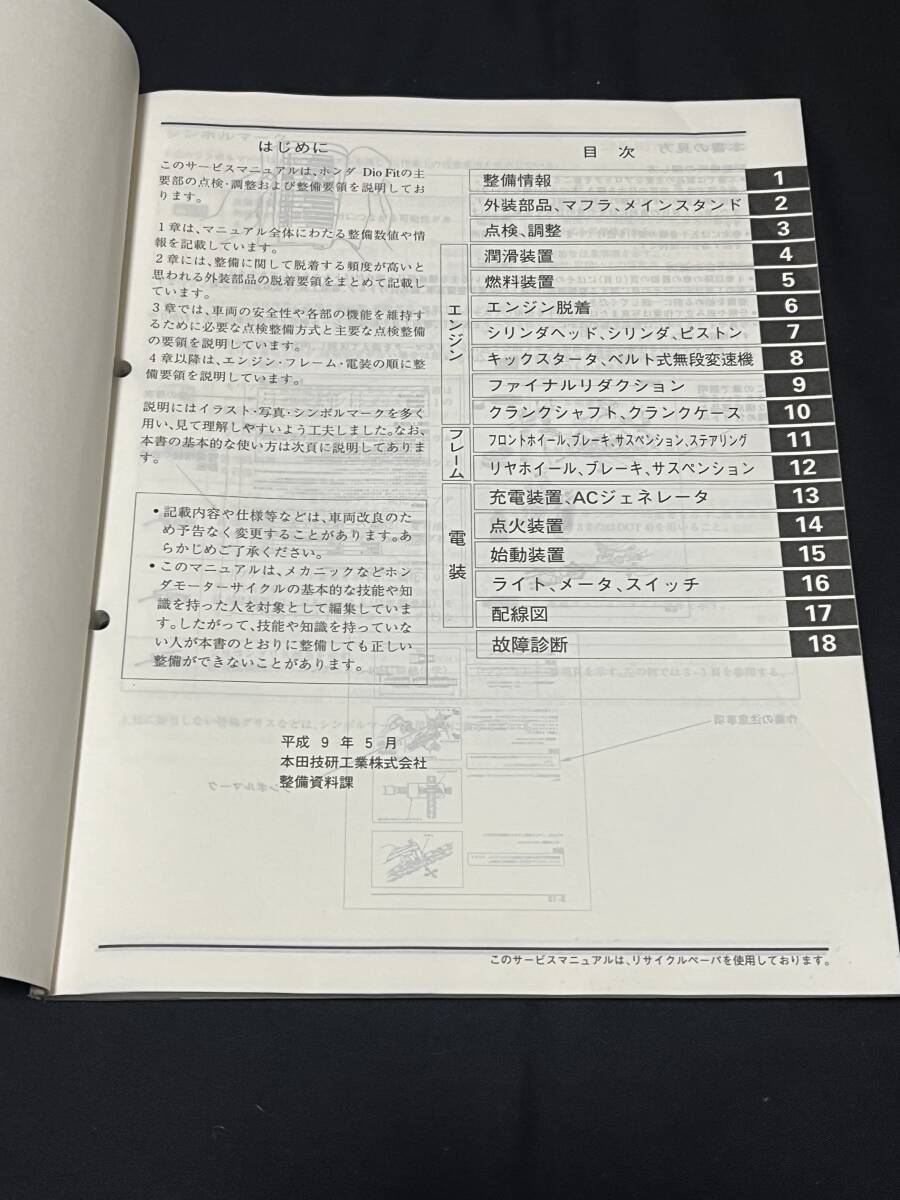 はじめに
このサービスマニュアルは、ホンダ Dio Fitの主
要部の点検・調整および整備要領を説明してお
ります。
1章は、マニュアル全体にわたる整備数値や情
報を記載しています。
2章には、整備に関して脱着する頻度が高いと
思われる外装部品の脱着要領をまとめて記載し
ています。
3章では、車両の安全性や各部の機能を維持す
るために必要な点検整備方式と主要な点検整備
の要領を説明しています。
4章以降は、エンジン・フレーム・電装の順に整
備要領を説明しています。
説明にはイラスト・写真・シンボルマークを多く
用い、見て理解しやすいよう工夫しました。なお、
本書の基本的な使い方は次頁に説明してありま
す。
• 記載内容や仕様等などは、車両改良のた
め予告なく変更することがあります。あ
らかじめご了承ください。
• このマニュアルは、メカニックなどホン
ダモーターサイクルの基本的な技能や知
識を持った人を対象として編集していま
す。したがって、技能や知識を持っていな
い人が本書のとおりに整備しても正しい
整備ができないことがあります。
平成 9 年 5 月
本田技研工業株式会社
整備資料課
目 次
整備情報 1
外装部品、マフラ、メインスタンド 2
点検、調整 3
エンジン
潤滑装置 4
燃料装置 5
エンジン脱着 6
シリンダヘッド、シリンダ、ピストン 7
キックスタータ、ベルト式無段変速機 8
ファイナルリダクション 9
クランクシャフト、クランクケース 10
フレーム
フロントホイール、ブレーキ、サスペンション、ステアリング 11
リヤホイール、ブレーキ、サスペンション 12
電装
充電装置、ACジェネレータ 13
点火装置 14
始動装置 15
ライト、メータ、スイッチ 16
配線図 17
故障診断 18
このサービスマニュアルは、リサイクルペーパを使用しております。